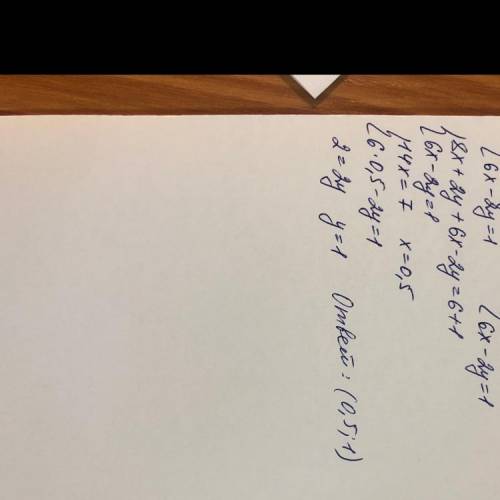 {6x-2y=1 {6x-2y=1
{8x+2y+6x-2y=6+1
{6x-2y=1
{14x=7 x=0,5
{6·0,5-2y=1
2=2y y=1 Ответ: (0,5;1)